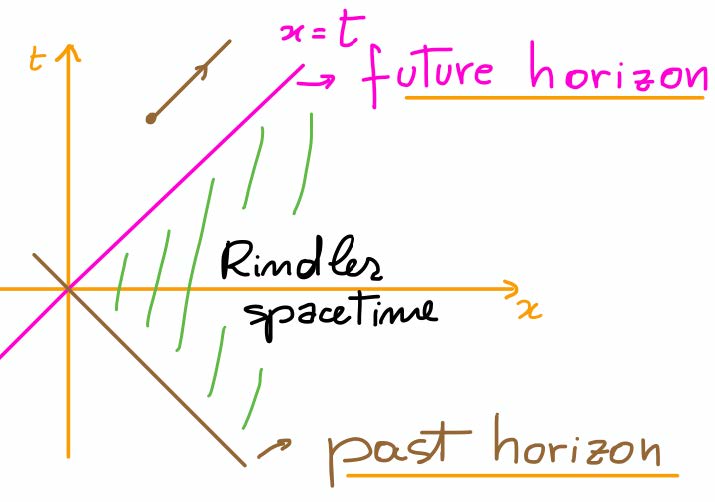 x = t
t
future horizon
Rindler
spacetime
x
past horizon